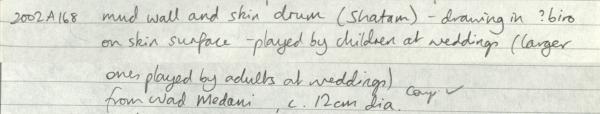 2002A168 mud wall and skin drum (Shatam) - drawing in ?biro
on skin surface - played by children at weddings (larger
ones played by adults at weddings)
from Wad Medani, c. 12cm dia. ✓